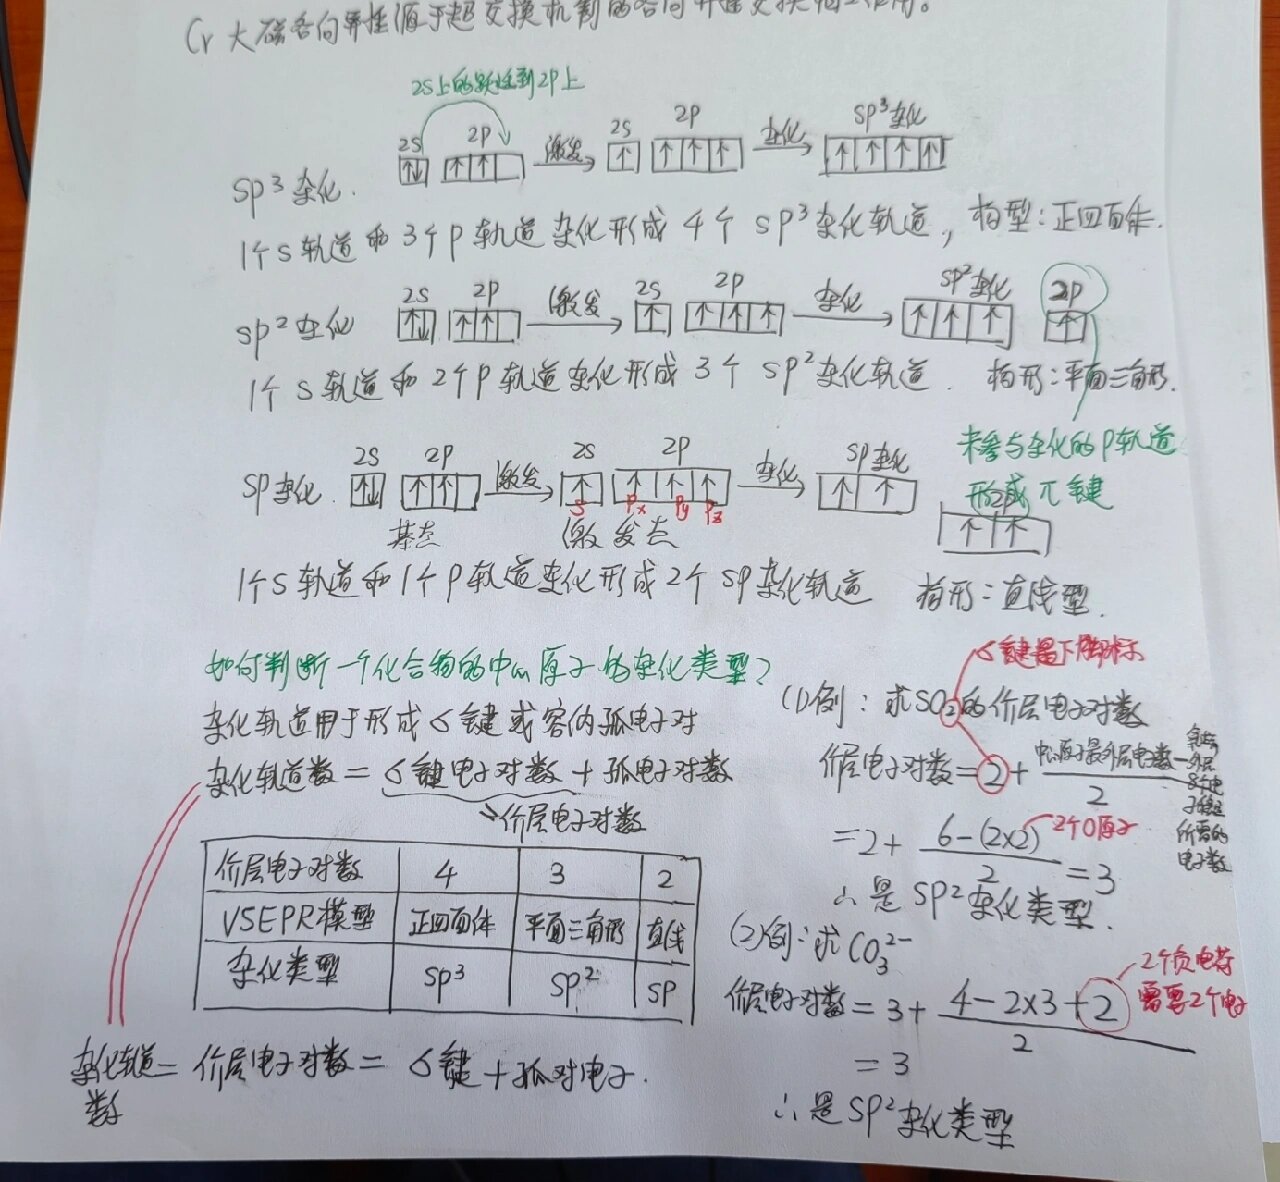 Cr 大磁各向异性源于超交换机制的各向异性交换相互作用。
2S上的跃迁到2P上
2S 2P 激发 2S 2P 杂化 SP³杂化
SP³杂化.
1个S轨道和3个P轨道杂化形成4个SP³杂化轨道, 构型:正四面体.
2S 2P 激发 2S 2P 杂化 SP²杂化 2P
SP²杂化
1个S轨道和2个P轨道杂化形成3个SP²杂化轨道. 构形:平面三角形.
未参与杂化的P轨道
形成π键
2S 2P 激发 2S 2P 杂化 SP杂化
SP杂化.
S Px Py Pz
基态 激发态
1个S轨道和1个P轨道杂化形成2个SP杂化轨道 构形:直线型.
如何判断一个化合物的中心原子的杂化类型?
杂化轨道用于形成σ键或容纳孤电子对
杂化轨道数=σ键电子对数+孤电子对数
价层电子对数
价层电子对数 4 3 2
VSEPR模型 正四面体 平面三角形 直线
杂化类型 SP³ SP² SP
杂化轨道数=价层电子对数=σ键+孤对电子.
σ键看下脚标
(1)例:求SO₂的价层电子对数
价层电子对数=2+(中心原子最外层电子数-氧原子外层8个电子稳定所需的电子数)/2
=2+(6-(2×2))/2=3
2个O原子
∴是SP²杂化类型.
(2)例:求CO₃²⁻
价层电子对数=3+(4-2×3+2)/2
2个负电荷
需要2个电子
=3
∴是SP²杂化类型